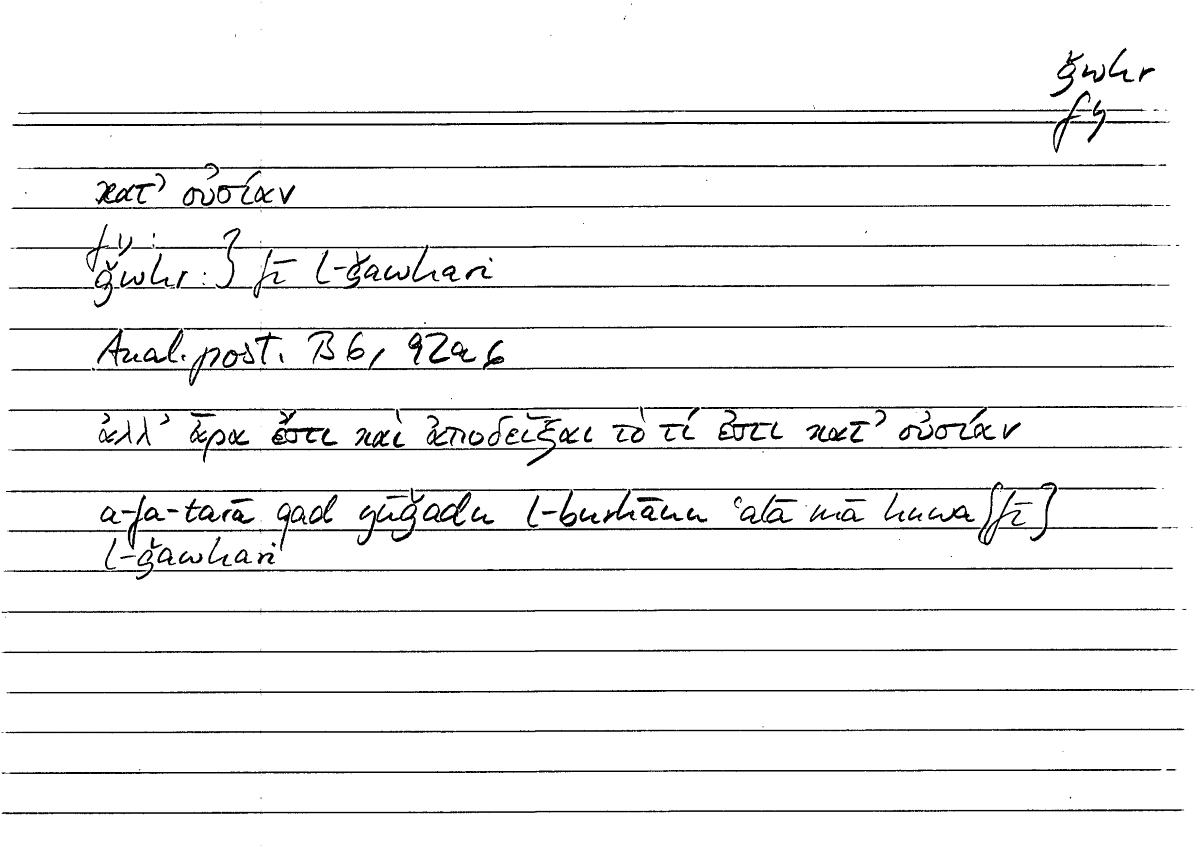 ǧwhr
fy
κατ’ οὐσίαν
fy :
ǧwhr : } fī l-ǧawhari
Anal. post. B 6, 92a6
ἀλλ’ ἆρα ἔστι καὶ ἀποδεῖξαι τὸ τί ἐστι κατ’ οὐσίαν
a-fa-tarā qad yūǧadu l-burhānu ʿalā mā huwa {fī}
l-ǧawhari